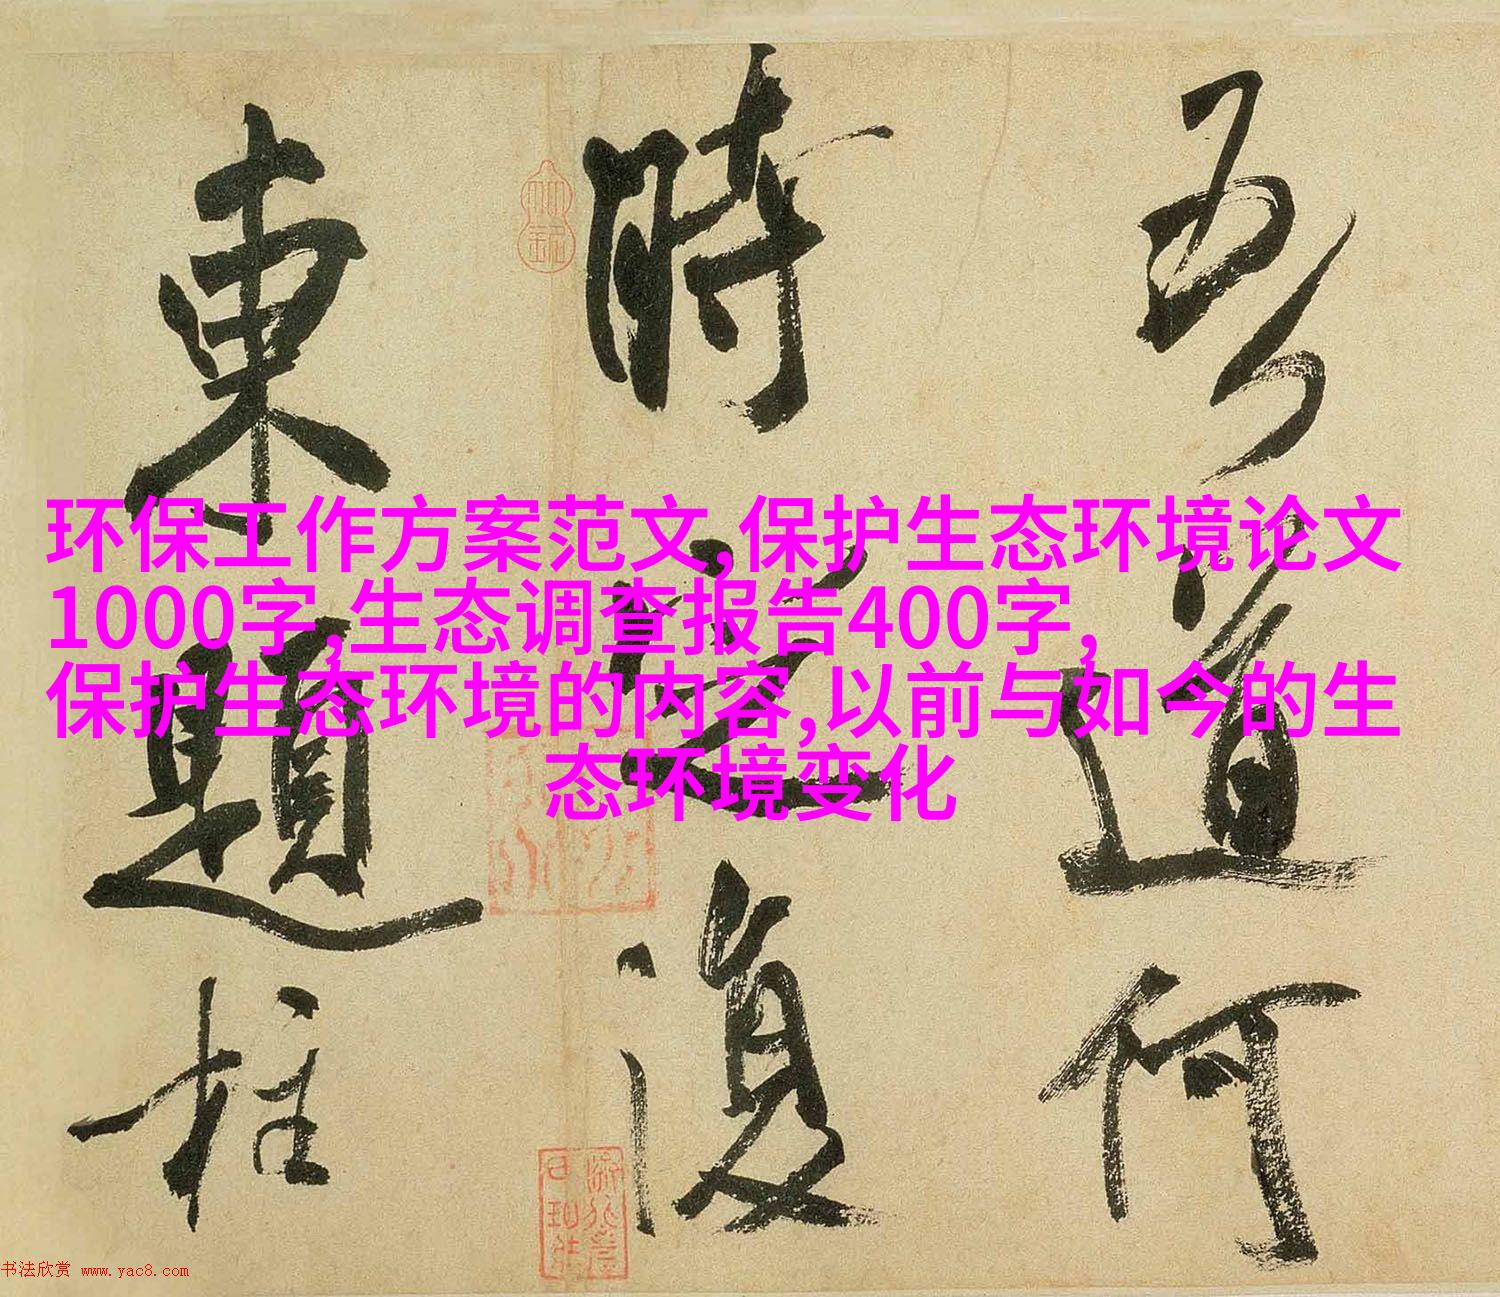 吾道何
時定復
東題柱
环保工作方案范文,保护生态环境论文
1000字,生态调查报告400字,
保护生态环境的内容,以前与如今的生
态环境变化
书法欣赏 www.yac8.com